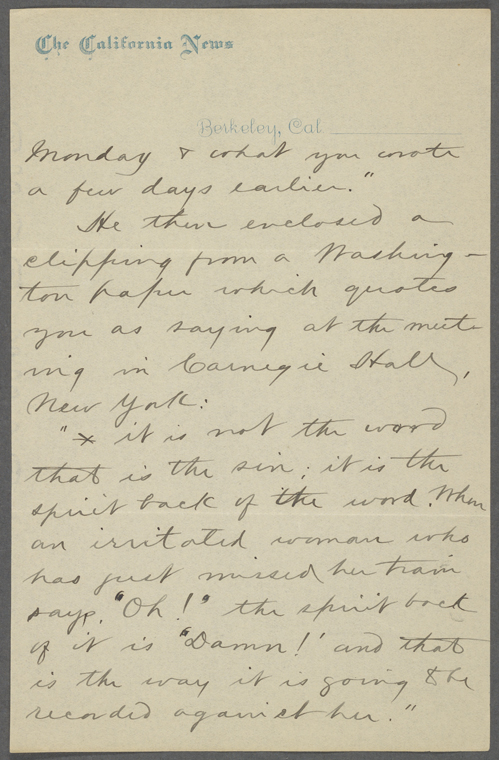 The California News
Berkeley, Cal
Monday & what you wrote
a few days earlier."
He then enclosed a
clipping from a Washing-
ton paper which quotes
you as saying at the meet-
ing in Carnegie Hall,
New York:
"x it is not the word
that is the sin; it is the
spirit back of the word. When
an irritated woman who
has just missed her train
says, "Oh!" the spirit back
of it is "Damn!' and that
is the way it is going to be
recorded against her."